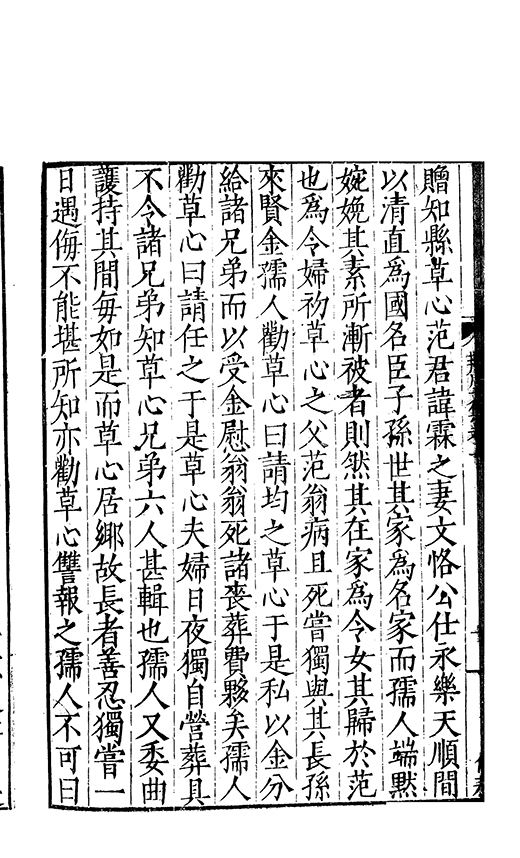 贈知縣草心范君諱霖之妻文恪公仕永樂天順間
以清直爲國名臣子孫世其家爲名家而孺人端默
婉娩其素所漸被者則然其在家爲令女其歸於范
也爲令婦初草心之父范翁病且死嘗獨與其長孫
來賢金孺人勸草心曰請均之草心于是私以金分
給諸兄弟而以受金慰翁翁死諸喪葬費夥矣孺人
勸草心曰請任之于是草心夫婦日夜獨自營葬具
不令諸兄弟知草心兄弟六人甚輯也孺人又委曲
護持其間每如是而草心居鄉故長者善忍獨嘗一
日遇侮不能堪所知亦勸草心讐報之孺人不可曰